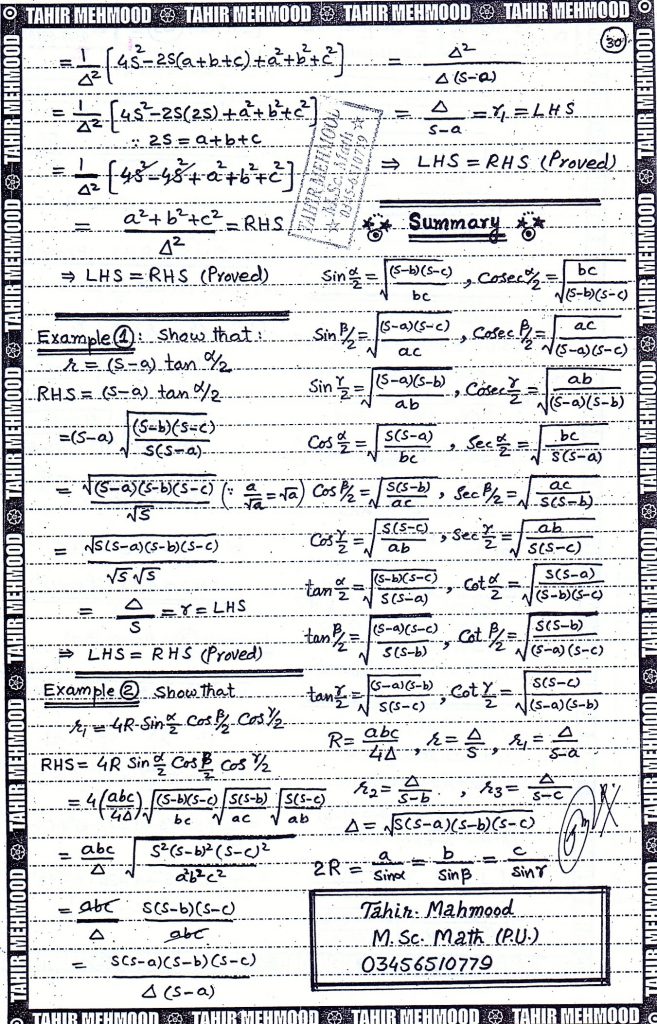 TAHIR MEHMOOD TAHIR MEHMOOD TAHIR MEHMOOD TAHIR MEHMOOD
30
= 1/Δ² [4S²-2S(a+b+c)+a²+b²+c²]
= 1/Δ² [4S²-2S(2S)+a²+b²+c²]
∵ 2S = a+b+c
= 1/Δ² [4S²-4S²+a²+b²+c²]
= (a²+b²+c²)/Δ² = RHS
⇒ LHS = RHS (Proved)
Example ①: Show that:
r = (S-a) tan α/2
RHS = (S-a) tan α/2
=(S-a) √((S-b)(S-c)/S(S-a))
= √((S-a)(S-b)(S-c))/√S (∵ a/√a = √a)
= √(S(S-a)(S-b)(S-c))/√S √S
= Δ/S = r = LHS
⇒ LHS = RHS (Proved)
Example ② Show that
r₁ = 4R Sin α/2 Cos β/2 Cos γ/2
RHS = 4R Sin α/2 Cos β/2 Cos γ/2
= 4(abc/4Δ) √((S-b)(S-c)/bc) √(S(S-b)/ac) √(S(S-c)/ab)
= abc/Δ √(S²(S-b)²(S-c)²/a²b²c²)
= abc/Δ S(S-b)(S-c)/abc
= S(S-a)(S-b)(S-c)/Δ(S-a)
= Δ²/Δ(S-a)
= Δ/(S-a) = r₁ = LHS
⇒ LHS = RHS (Proved)
TAHIR MEHMOOD
M.Sc. Math
0345-6510779
Summary
Sin α/2 = √((S-b)(S-c)/bc) , Cosec α/2 = √(bc/(S-b)(S-c))
Sin β/2 = √((S-a)(S-c)/ac) , Cosec β/2 = √(ac/(S-a)(S-c))
Sin γ/2 = √((S-a)(S-b)/ab) , Cosec γ/2 = √(ab/(S-a)(S-b))
Cos α/2 = √(S(S-a)/bc) , Sec α/2 = √(bc/S(S-a))
Cos β/2 = √(S(S-b)/ac) , Sec β/2 = √(ac/S(S-b))
Cos γ/2 = √(S(S-c)/ab) , Sec γ/2 = √(ab/S(S-c))
tan α/2 = √((S-b)(S-c)/S(S-a)) , Cot α/2 = √(S(S-a)/(S-b)(S-c))
tan β/2 = √((S-a)(S-c)/S(S-b)) , Cot β/2 = √(S(S-b)/(S-a)(S-c))
tan γ/2 = √((S-a)(S-b)/S(S-c)) , Cot γ/2 = √(S(S-c)/(S-a)(S-b))
R = abc/4Δ , r = Δ/S , r₁ = Δ/(S-a)
r₂ = Δ/(S-b) , r₃ = Δ/(S-c)
Δ = √(S(S-a)(S-b)(S-c))
2R = a/Sinα = b/Sinβ = c/Sinγ
Tahir Mahmood
M.Sc. Math (P.U.)
03456510779
TAHIR MEHMOOD TAHIR MEHMOOD TAHIR MEHMOOD TAHIR MEHMOOD